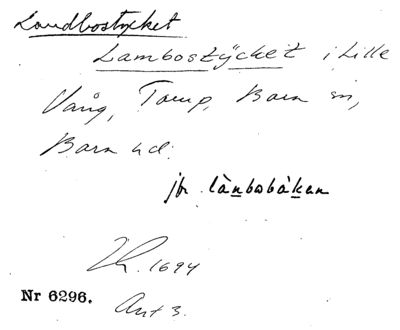 Landbostycket
Lambostycket i Lille
Vång, Torup, Bara sn,
Bara hd.
jfr lànbobàkan
1694
Nr 6296. Ant 3.